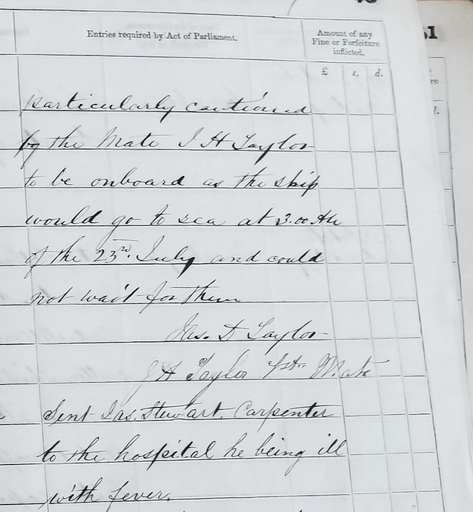 Entries required by Act of Parliament.
Amount of any
Fine or Forfeiture
inflicted.
£ s. d.
particularly cautioned
by the Mate J H Taylor
to be onboard as the ship
would go to sea at 3.00 AM
of the 23rd. July and could
not wait for them
Jas. D Taylor
J H Taylor 1st Mate
Sent Jas. Stewart. Carpenter
to the hospital he being ill
with fever.